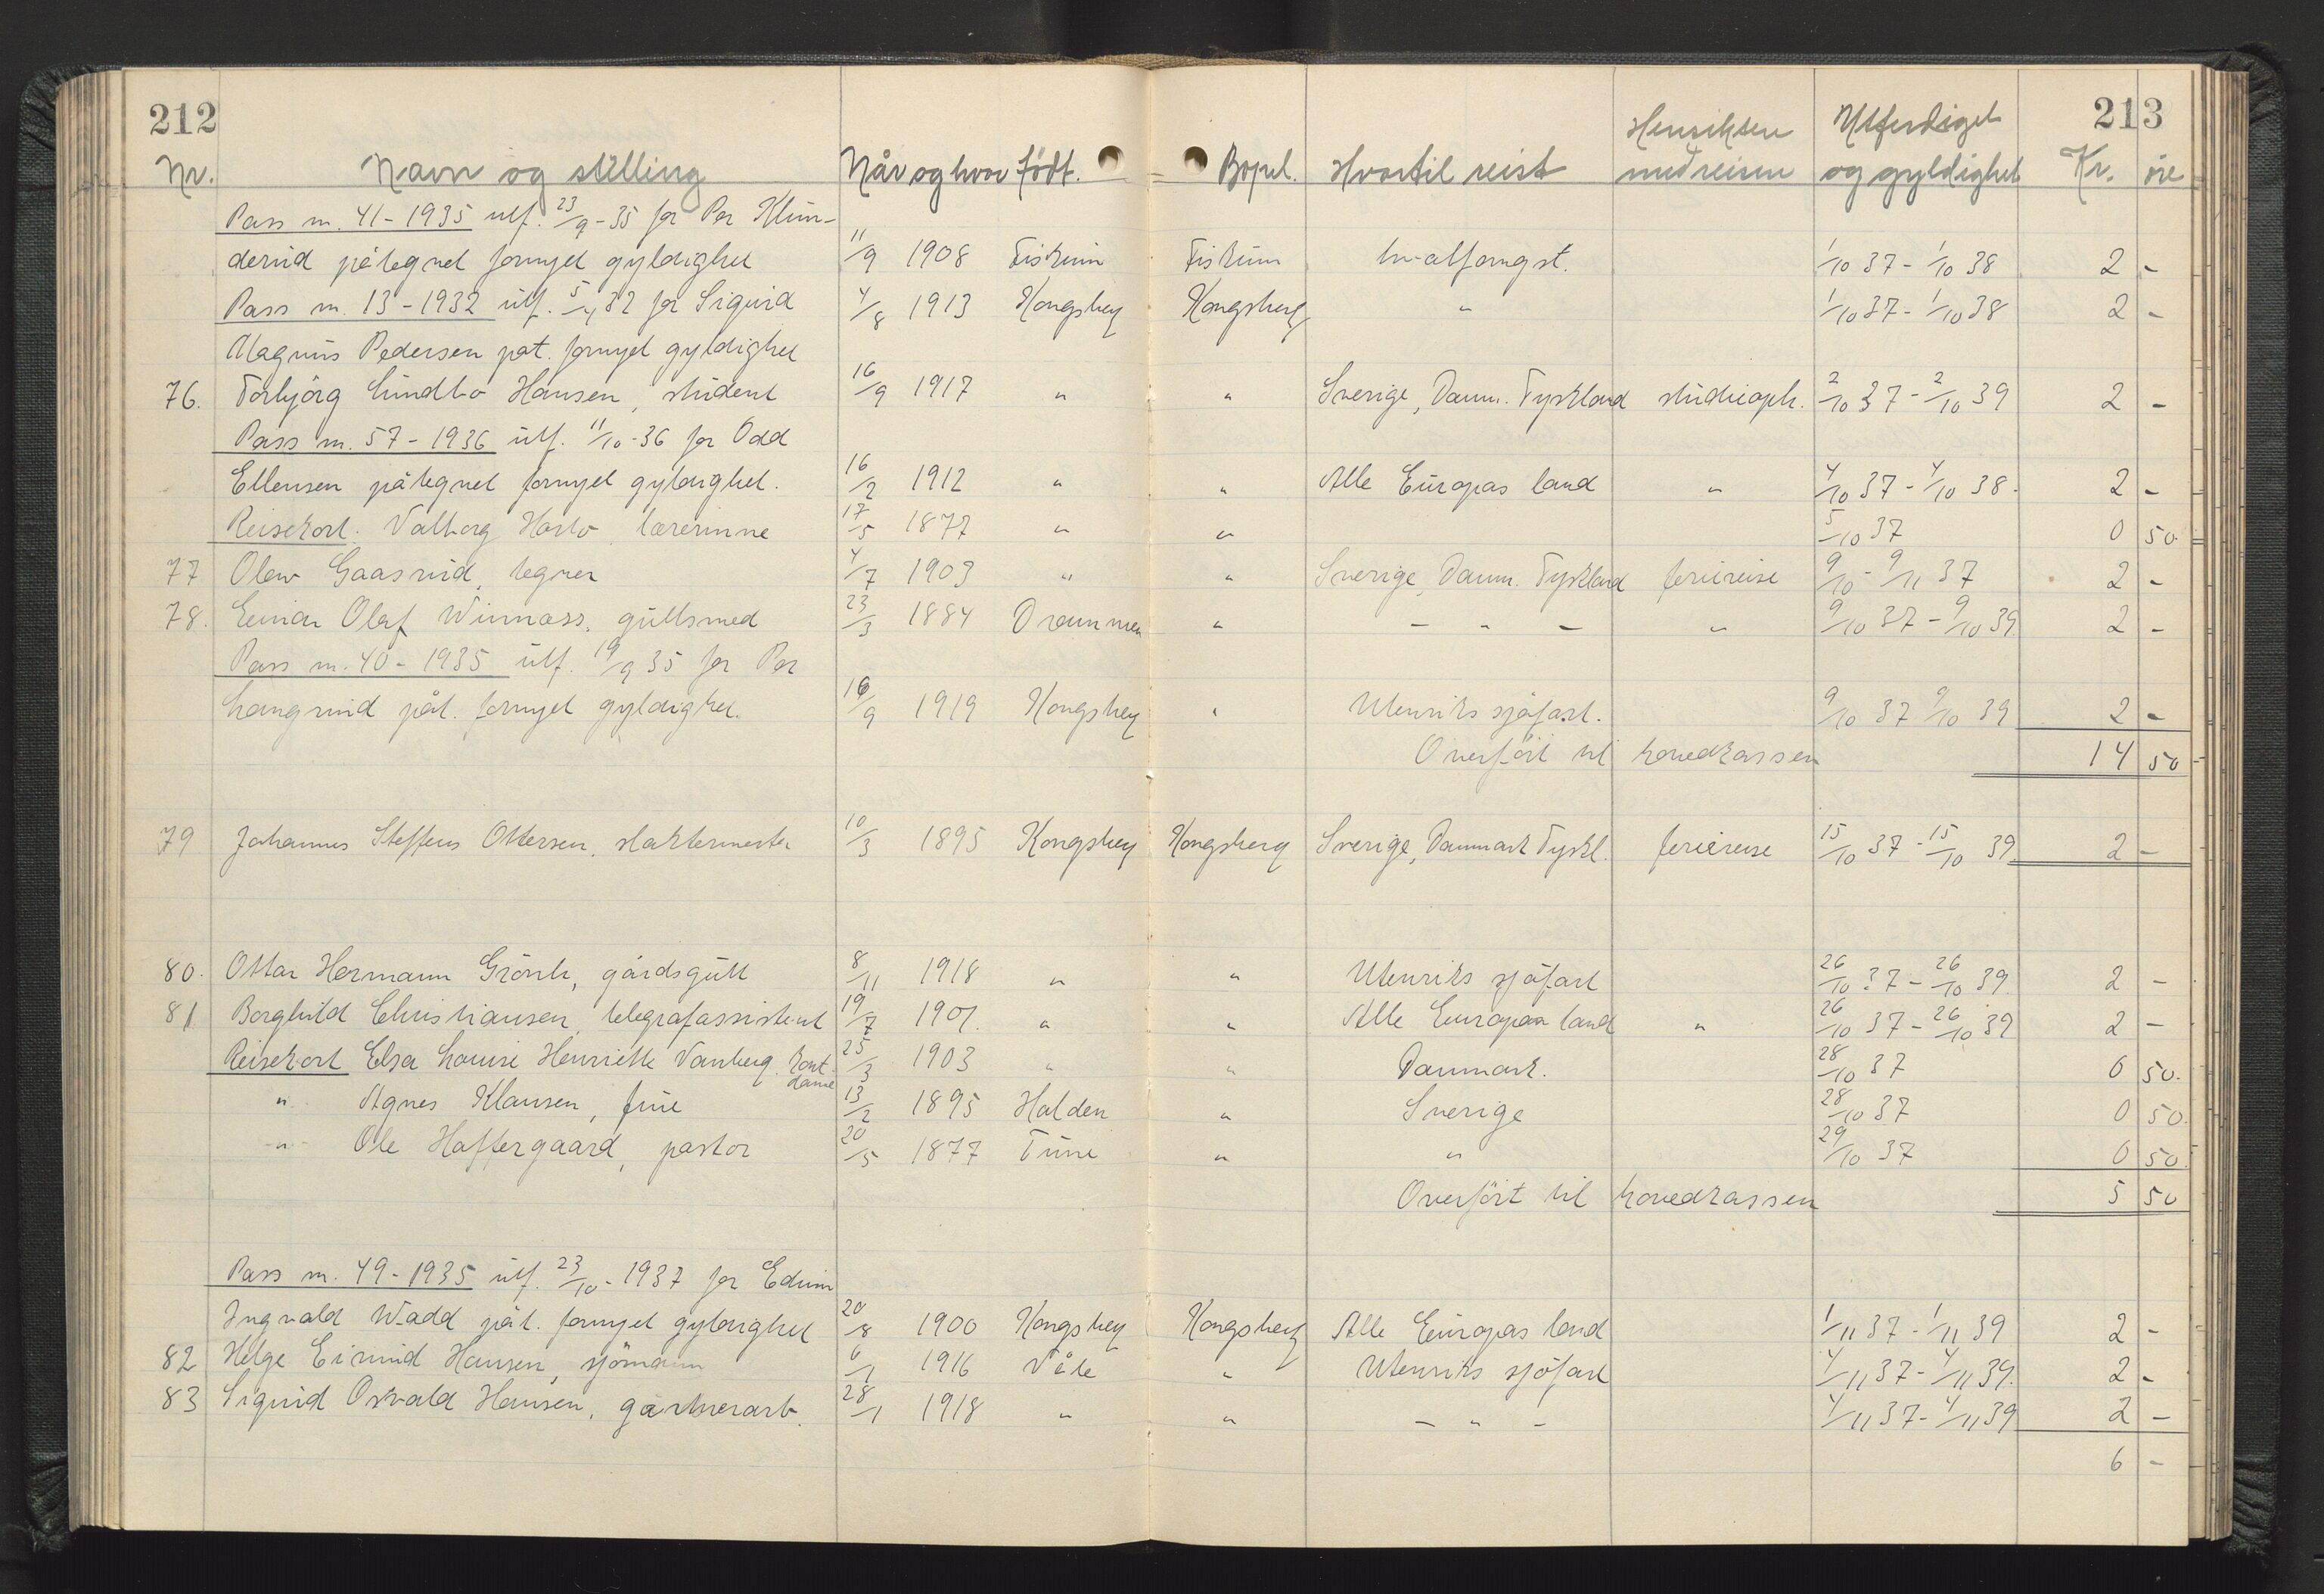 212
213
Nr. Navn og stilling Når og hvor født. Bopel. Hvortil reist Hensikten med reisen Utferdiget og gyldighet Kr. øre
Pass nr. 41-1935 utf. 23/9-35 for Per
påtegnet fornyet gyldighet 11/9 1908 Fiskum Fiskum hvalfangst. 1/10 37 - 1/10 38 2 -
Pass nr. 13-1932 utf. 5/4 32 for Sigurd 4/8 1913 Kongsberg Kongsberg " 1/10 37 - 1/10 38 2 -
Magnus Pedersen påt. fornyet gyldighet
76. Torbjörg Lindbo Hansen, student 16/9 1917 " " Sverige, Danm. Tyskland studieoph. 2/10 37 - 2/10 39 2 -
Pass nr. 57-1936 utf. 11/10-36 for Odd
Ellensen påtegnet fornyet gyldighet. 16/2 1912 " " Alle Europas land " 4/10 37 - 4/10 38. 2 -
Reisekort. Valborg lærerinne 17/5 1877 " " 5/10 37 0 50
77 Olav Gaasrud, tegner 4/7 1903 " " Sverige, Danm. Tyskland feriereise 9/10 - 9/11 37 2 -
78. Einar Olaf Winnæss, gullsmed 23/3 1884 Drammen " - " - " 9/10 37 - 9/10 39. 2 -
Pass nr. 40-1935 utf. 19/9 35 for Per
Langrud påt. fornyet gyldighet. 16/9 1919 Kongsberg " Utenriks sjöfart. 9/10 37 9/10 39 2 -
Overfört til hovedkassen 14 50
79 Johannes Steffens Ottersen, slaktermester 10/3 1895 Kongsberg Kongsberg Sverige, Danmark Tyskl. feriereise 15/10 37 - 15/10 39 2 -
80. Ottar Hermann Grönli, gårdsgutt 8/11 1918 " " Utenriks sjöfart 26/10 37 - 26/10 39. 2 -
81 Borghild Christiansen, telegrafassistent 19/7 1901. " " Alle Europas land " 26/10 37 - 26/10 39 2 -
Reisekort Elsa Louise Henriette Vamberg. kont. dame 25/3 1903 " " Danmark. 28/10 37 0 50.
" Agnes Klausen, frue 13/2 1895 Halden " Sverige 28/10 37 0 50.
" Ole Haftergaard, pastor 20/5 1877 Tune " " 29/10 37 0 50.
Overfört til hovedkassen 5 50
Pass nr. 49-1935 utf. 23/10-1937 for Edvin
Ingvald Wadd påt. fornyet gyldighet 20/8 1900 Kongsberg Kongsberg Alle Europas land 1/11 37 - 1/11 39 2 -
82 Helge Eimund Hansen, sjömann 6/1 1916 Våle " Utenriks sjöfart 4/11 37 - 4/11 39. 2 -
83 Sigurd Osvald Hansen, gartnerarb. 28/1 1918 " " - " - 4/11 37 - 4/11 39 2 -
6 -